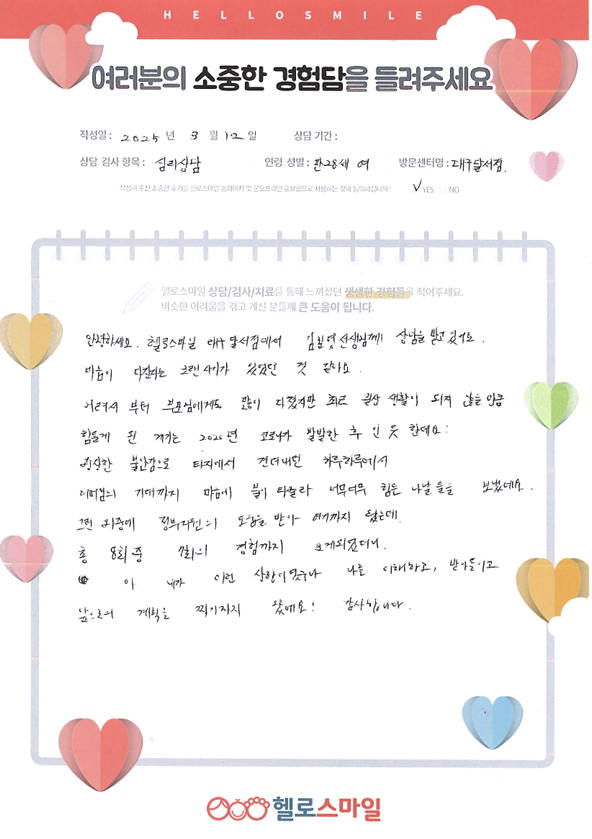 HELLOSMILE
여러분의 소중한 경험담을 들려주세요
작성일 : 2025 년 3 월 12 일 상담 기간 :
상담 검사 항목 : 심리상담 연령 성별 : 만28세 여 방문센터명 : 대구달서점.
작성해 주신 소중한 후기를 헬로스마일 홈페이지 및 온오프라인 홍보용으로 사용하는 것에 동의하십니까? ✓ YES NO
헬로스마일 상담/검사/치료를 통해 느끼셨던 생생한 경험들을 적어주세요.
비슷한 어려움을 겪고 계신 분들께 큰 도움이 됩니다.
안녕하세요. 헬로스마일 대구 달서점에서 선생님께 상담을 받고 있어요.
마음이 다쳤다는 시기가 있었던 것 같아요.
어려서 부터 부모님에게도 많이 다쳤지만 최근 일상 생활이 되지 않을 만큼
힘들게 된 계기는 코로나가 발발한 후 인 듯 한데요!
불안감으로 타지에서 견뎌내던 하루하루에서
기대까지 마음에 불이 타올라 너무너무 힘든 나날들을 보냈네요.
그런 와중에 정부지원의 도움을 받아 여기까지 왔는데.
총 8회 중 7회의 경험까지
아 내가 이런 사람이었구나 나를 이해하고, 받아들이고
앞으로의 계획을 찍기까지 왔네요! 감사합니다.
헬로스마일